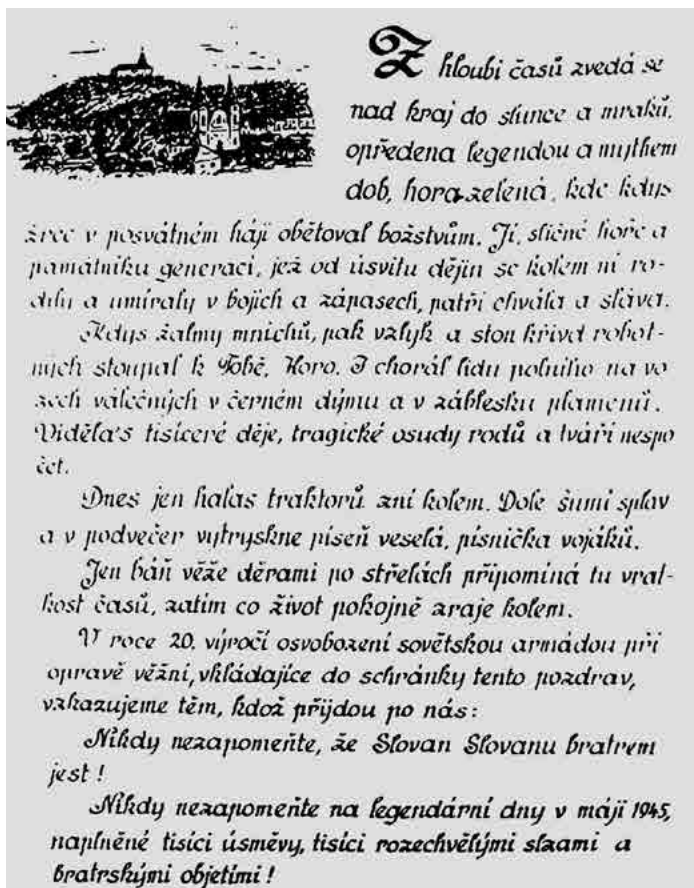 Z hloubi časů zvedá se
nad kraj do slunce a mraků,
opředena legendou a mythem
dob, hora zelená, kde kdys
žrec v posvátném háji obětoval božstvům. Jí, sličné hoře a
památníku generací, jež od úsvitu dějin se kolem ní ro-
dily a umíraly v bojích a zápasech, patří chvála a sláva.
Kdys žalmy mnichů, pak vzlyk a ston křivd robot-
ných stoupal k Tobě, Horo. I chorál lidu polního na vo
zech válečných v černém dýmu a v záblesku plamenů.
Viděla's tisíceré děje, tragické osudy rodů a tváří nespo
čet.
Dnes jen halas traktorů zní kolem. Dole šumí splav
a v podvečer vytryskne píseň veselá, písnička vojáků.
Jen báň věže děrami po střelách připomíná tu vrat-
kost časů, zatím co život pokojně zraje kolem.
V roce 20. výročí osvobození sovětskou armádou při
opravě věžní, vkládajíce do schránky tento pozdrav,
vzkazujeme těm, kdož přijdou po nás:
Nikdy nezapomeňte, že Slovan Slovanu bratrem
jest!
Nikdy nezapomeňte na legendární dny v máji 1945,
naplněné tisíci úsměvy, tisíci rozechvělými slzami a
bratrskými objetími!